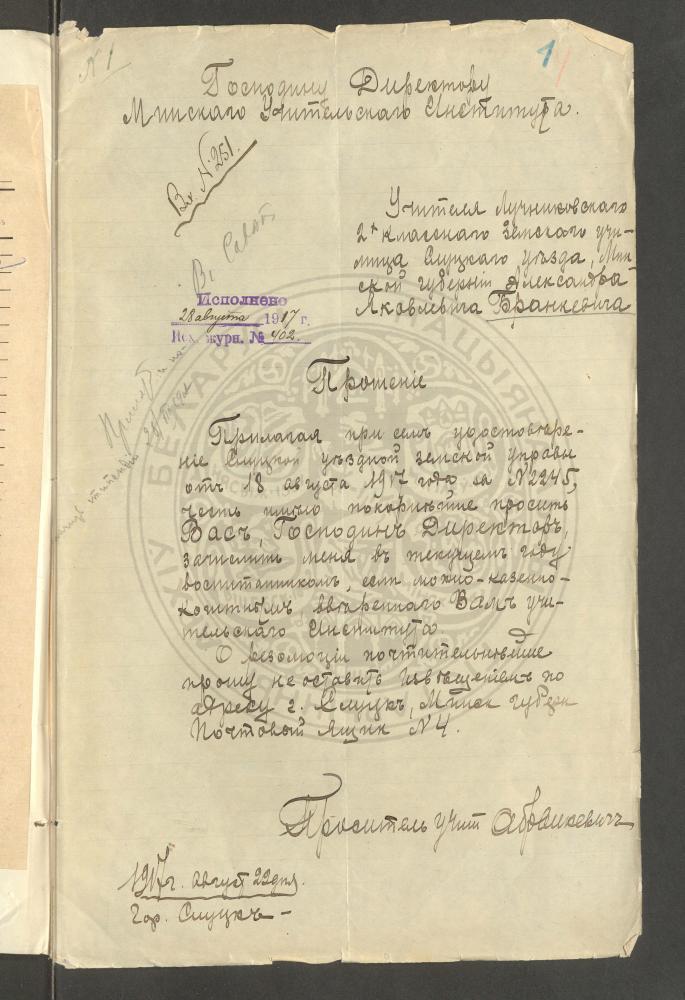 N 1
1
Господину Директору
Минскаго Учительскаго Института.
Вх. № 251.
Учителя Лучниковскаго
2х класснаго земскаго учи-
лища Слуцкаго уѣзда, Мин-
ской губерніи Александра
Яковлевича Бранкевича
Исполнено
28 августа 1917 г.
Исх. журн. № 402.
Прошеніе
Прилагая при семъ удостовѣре-
ніе Слуцкой уѣздной земской управы
отъ 18 августа 1917 года за N 2245,
честь имѣю покорнѣйше просить
Васъ, Господинъ Директоръ,
зачислить меня въ текущемъ году
воспитанникомъ, если можно-казенно-
коштнымъ, ввѣреннаго Вамъ учи-
тельскаго Института
О резолюціи почтительнѣйше
прошу не оставить извѣщеніемъ по
адресу г. Слуцкъ, Минск губерн
Почтовый ящик N 4.
Проситель учит А Бранкевичъ
1917 г. август 22 дня.
Гор. Слуцкъ –